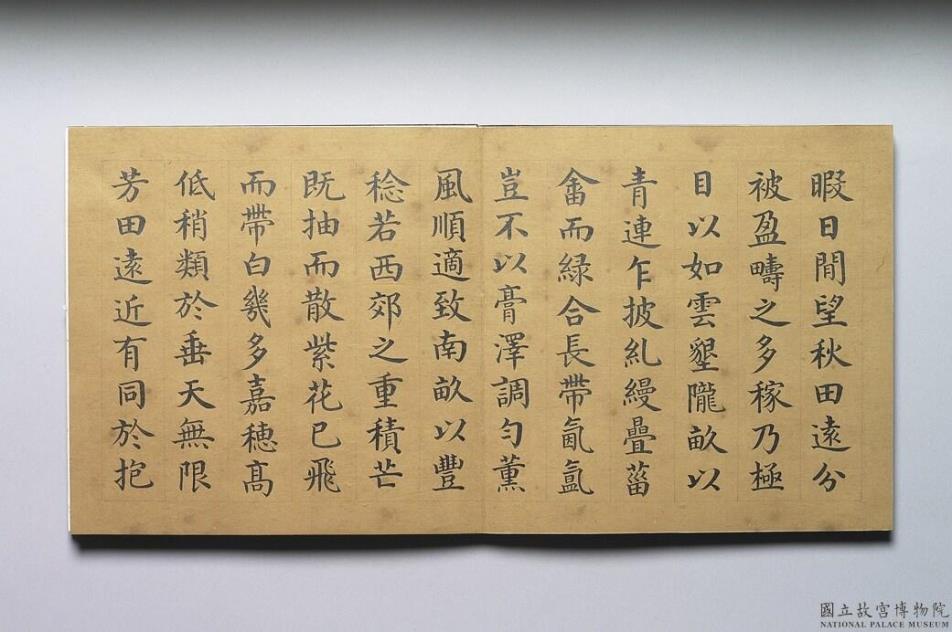 暇日閒望秋田遠分
被盈疇之多稼乃極
目以如雲墾隴畝以
青連乍披糺縵疊菑
畬而緑合長帶氤氲
豈不以膏澤調勻薰
風順適致南畝以豐
稔若西郊之重積芒
既抽而散紫花已飛
而帶白幾多嘉穗髙
低稍類於垂天無限
芳田遠近有同於抱
國立故宮博物院
NATIONAL PALACE MUSEUM